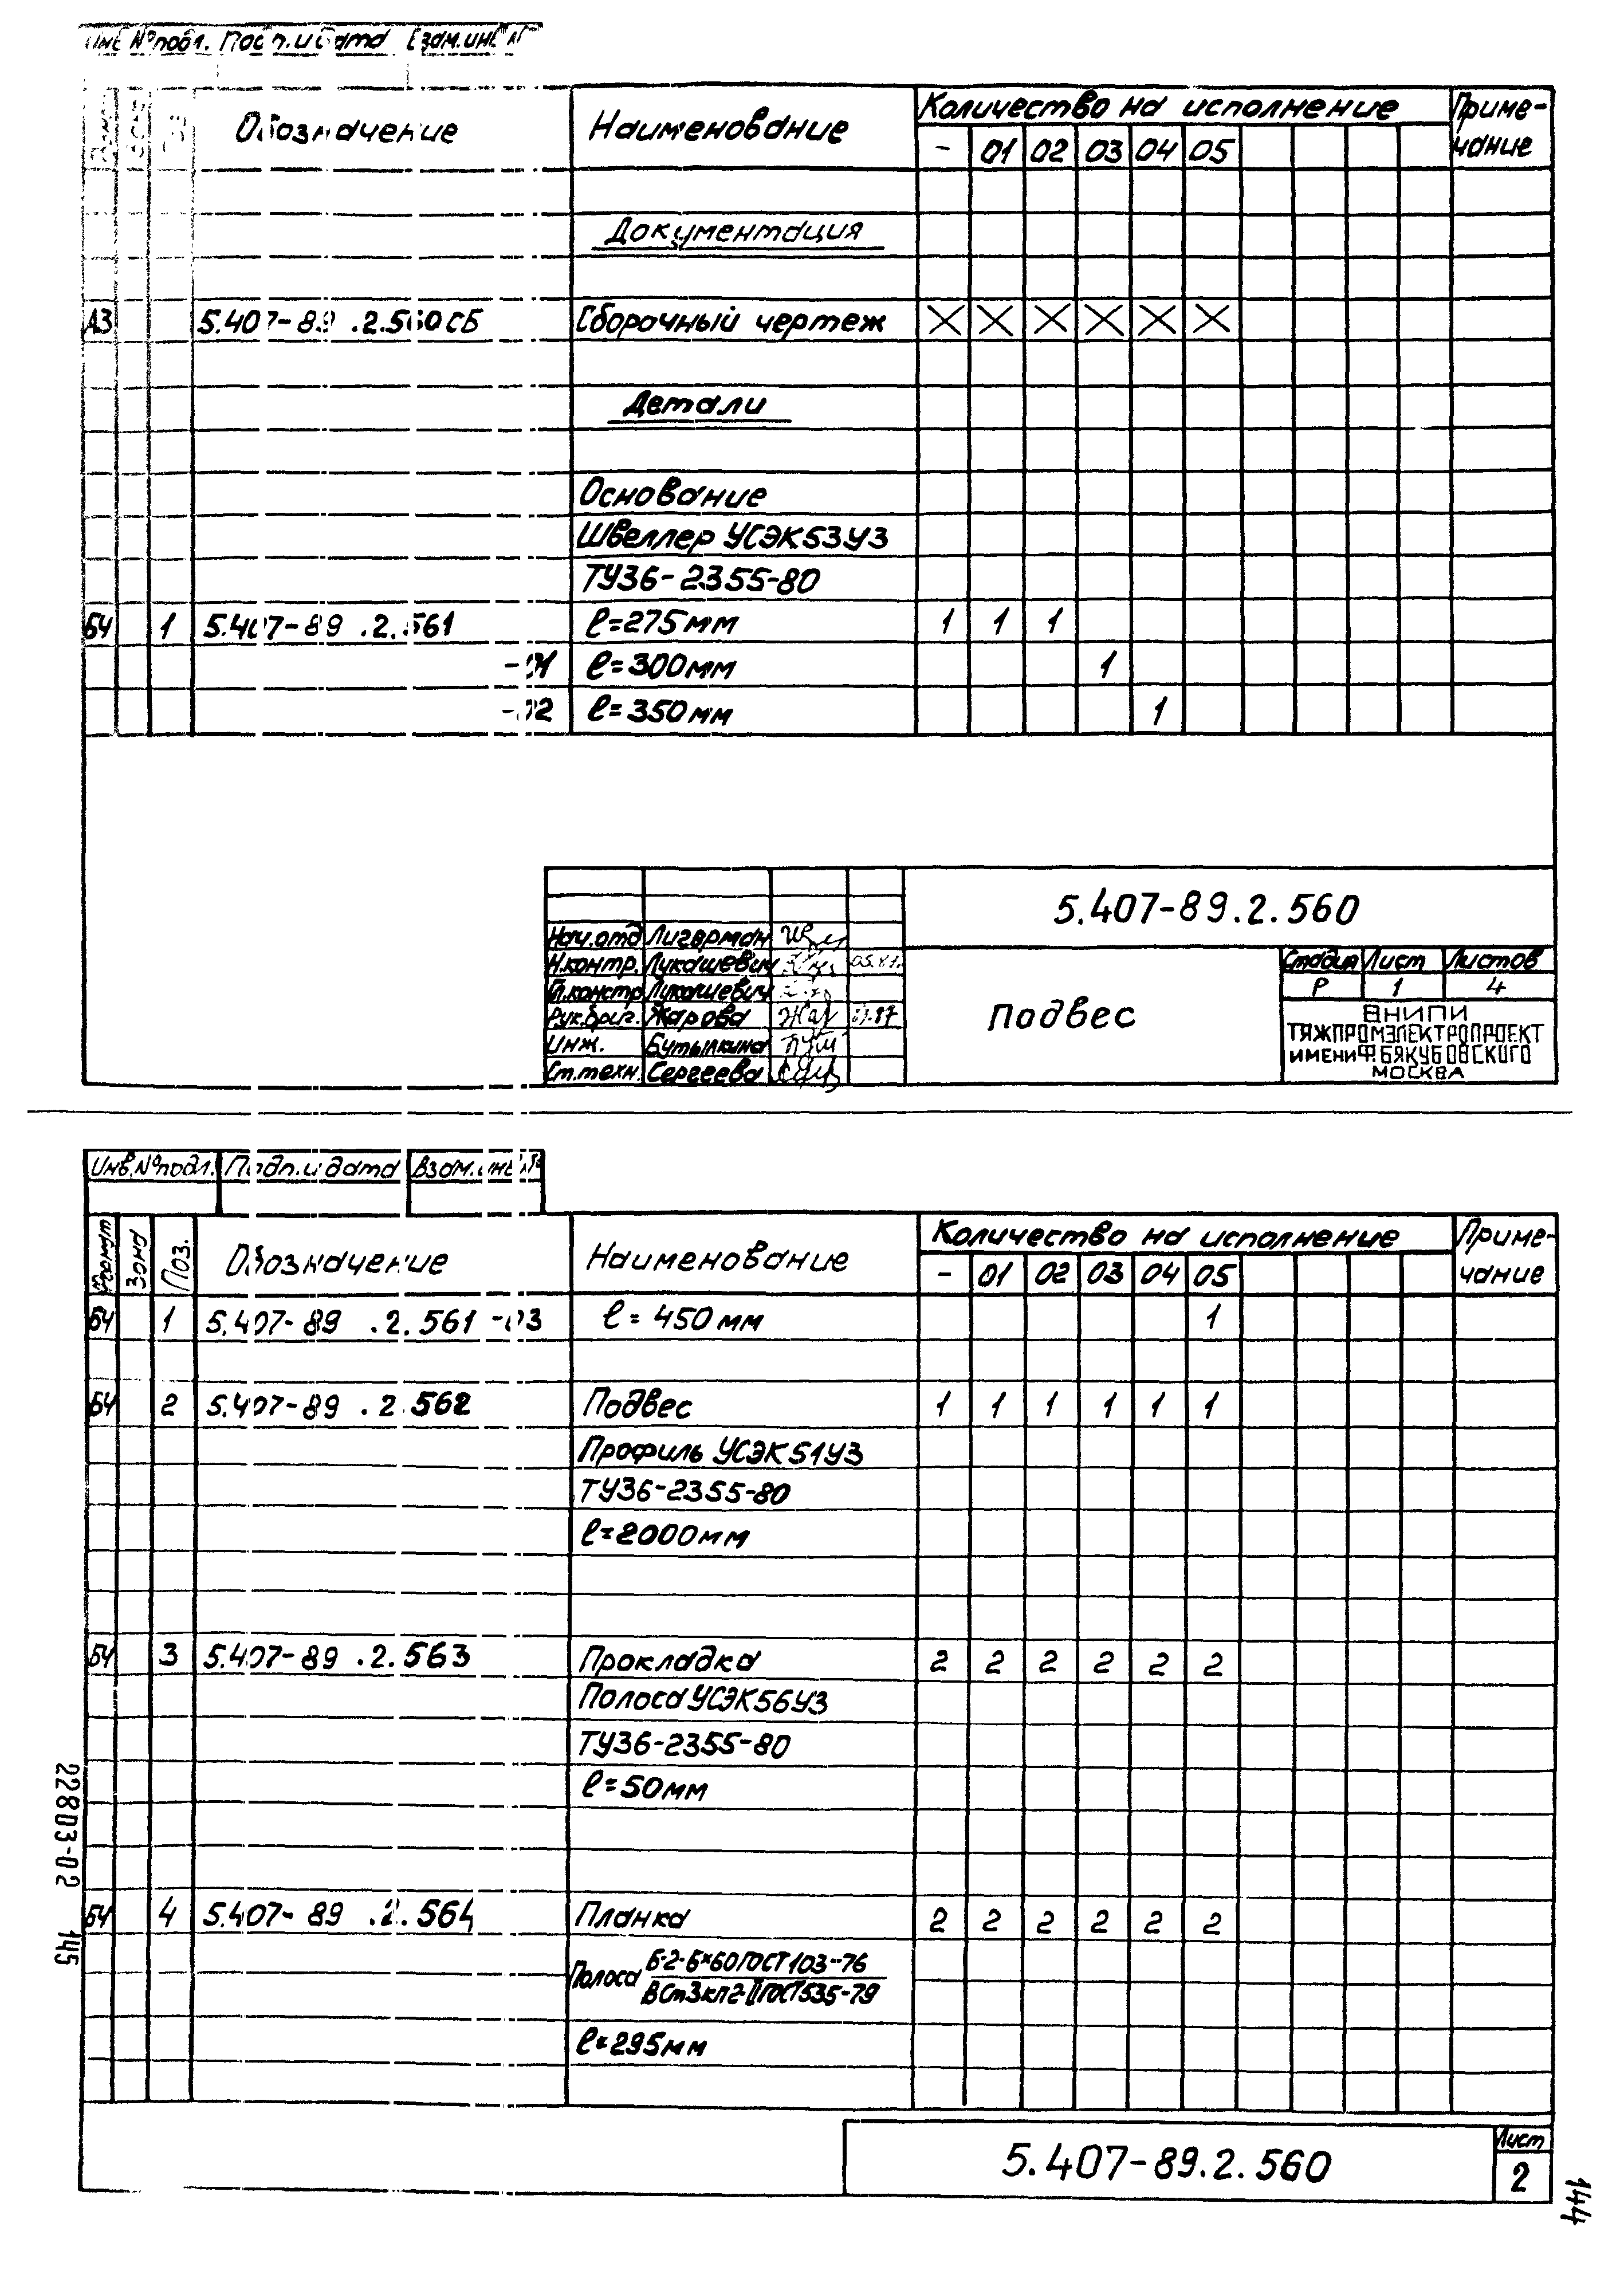 Инв.№подл. Подп. и дата Взам.инв.№
Обозначение Наименование Количество на исполнение Приме-
- 01 02 03 04 05 чание
Документация
А3 5.407-89.2.560СБ Сборочный чертеж X X X X X X
Детали
Основание
Швеллер УСЭК53У3
ТУ36-2355-80
БЧ 1 5.407-89.2.561 ℓ=275мм 1 1 1
-01 ℓ=300мм 1
-02 ℓ=350мм 1
5.407-89.2.560
Нач.отд Лигерман
Н.контр. Лукашевич
Гл.констр Лукашевич
Рук.бриг. Жарова
Инж. Бутылкина
Ст.техн. Сергеева
Подвес
Стадия Лист Листов
Р 1 4
ВНИПИ
ТЯЖПРОМЭЛЕКТРОПРОЕКТ
ИМЕНИ Ф.Б.ЯКУБОВСКОГО
МОСКВА
Инв.№подл. Подп. и дата Взам.инв.№
Формат Зона Поз. Обозначение Наименование Количество на исполнение Приме-
- 01 02 03 04 05 чание
БЧ 1 5.407-89.2.561-03 ℓ=450мм 1
БЧ 2 5.407-89.2.562 Подвес 1 1 1 1 1 1
Профиль УСЭК51У3
ТУ36-2355-80
ℓ=2000мм
БЧ 3 5.407-89.2.563 Прокладка 2 2 2 2 2 2
Полоса УСЭК56У3
ТУ36-2355-80
ℓ=50мм
БЧ 4 5.407-89.2.564 Планка 2 2 2 2 2 2
Полоса Б-2-6×60 ГОСТ103-76
ВСт3кп2-II ГОСТ535-79
ℓ=295мм
5.407-89.2.560
Лист
2
22803-02 145
144